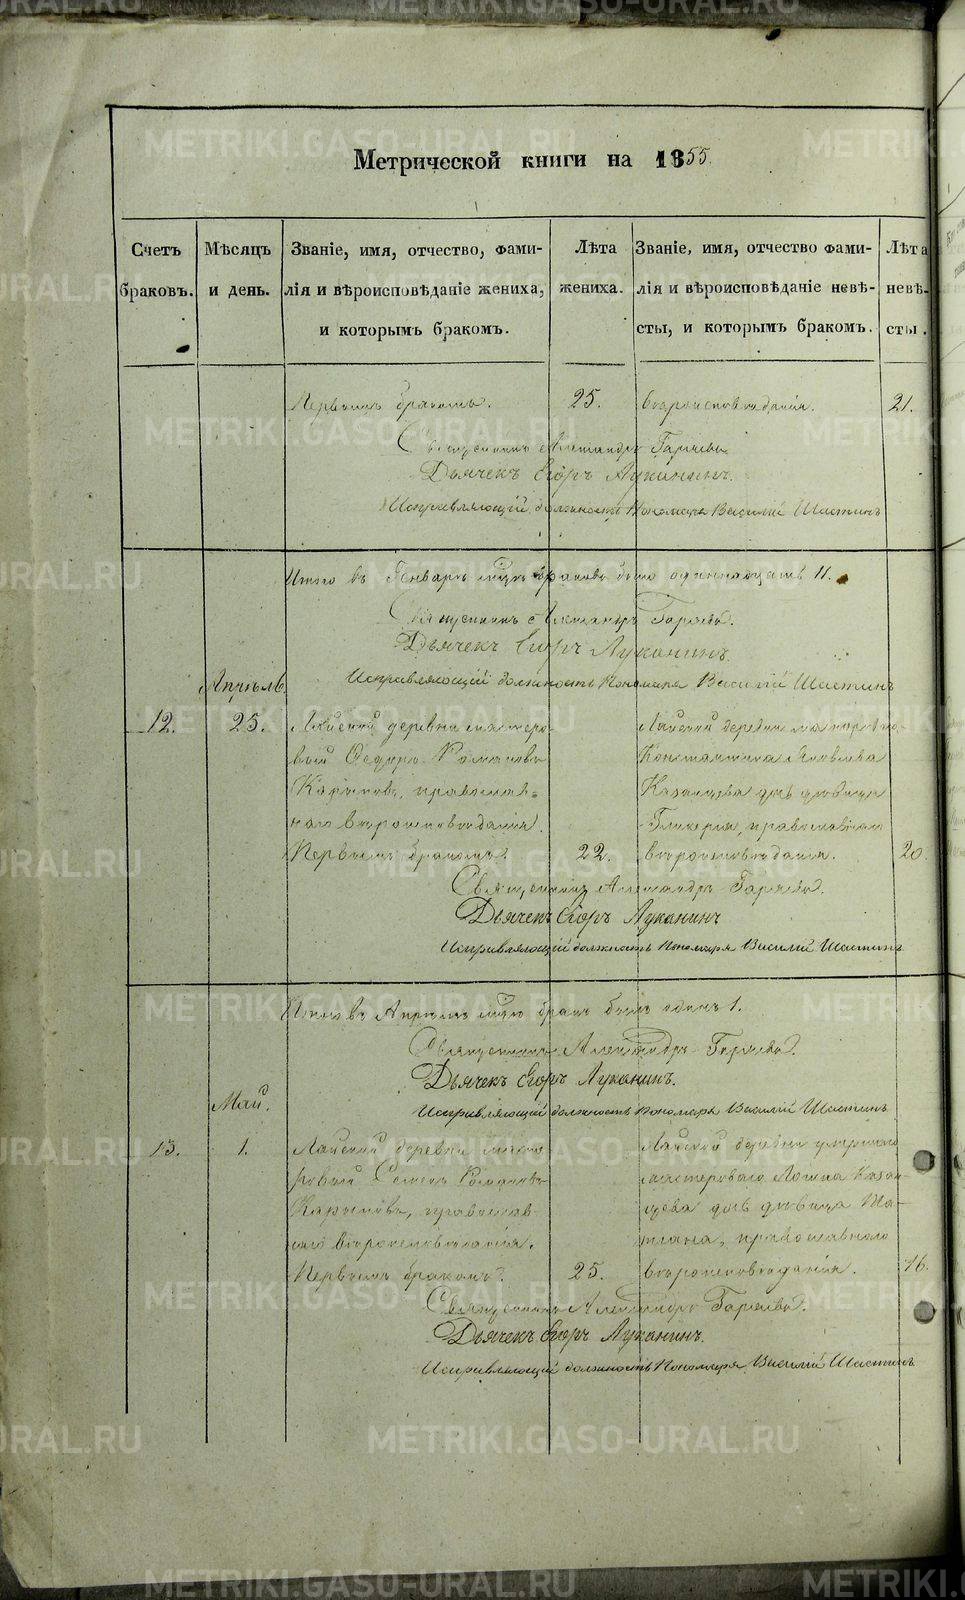 METRIKI.GASO-URAL.RU
Метрической книги на 1855.
Счетъ браковъ.
Мѣсяцъ и день.
Званіе, имя, отчество, фами-
лія и вѣроисповѣданіе жениха,
и которымъ бракомъ.
Лѣта жениха.
Званіе, имя, отчество фами-
лія и вѣроисповѣданіе невѣ-
сты, и которымъ бракомъ.
Лѣта невѣ-
сты.
Первымъ бракомъ. 25. вѣроисповѣданія. 21.
Священникъ Александръ
Дьячекъ Егоръ Луканинъ.
Исправляющій должность Пономаря Василій Шастинъ
Итого въ Генварѣ мѣцѣ браковъ было одиннацать 11.
Священникъ Александръ
Дьячекъ Егоръ Луканинъ.
Исправляющій должность Пономаря Василій Шастинъ
Апрѣль
12. 25.
Лайской деревни мастеро-
вый Ѳедоръ Романовъ
православ-
наго вѣроисповѣданія.
Первымъ бракомъ. 22.
Лайской деревни мастероваго
Константина Яковлева
Казанцева дочь дѣвица
Гликерія, православнаго
вѣроисповѣданія. 20.
Священникъ Александръ
Дьячекъ Егоръ Луканинъ
Исправляющій должность Пономаря Василій Шастинъ
въ Апрѣлѣ мѣцѣ бракъ былъ одинъ 1.
Священникъ Александръ
Дьячекъ Егоръ Луканинъ.
Исправляющій должность Пономаря Василій Шастинъ
Май.
13. 1.
Лайской деревни масте-
ровый Семенъ Романовъ
православ-
наго вѣроисповѣданія.
Первымъ бракомъ. 25.
Лайской деревни умершаго
мастероваго Казан-
цева дочь дѣвица Та-
тіана, православнаго
вѣроисповѣданія. 16.
Священникъ Александръ
Дьячекъ Егоръ Луканинъ.
Исправляющій должность Пономаря Василій Шастинъ